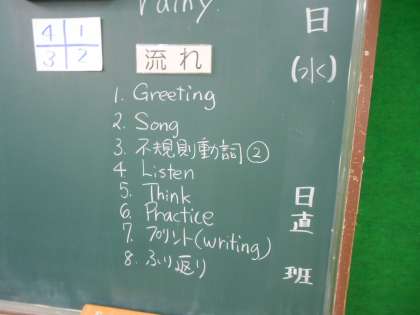 rainy.
4 1
3 2
流れ
1. Greeting
2. Song
3. 不規則動詞②
4. Listen
5. Think
6. Practice
7. プリント(writing)
8. ふり返り
日
(水)
日直
班